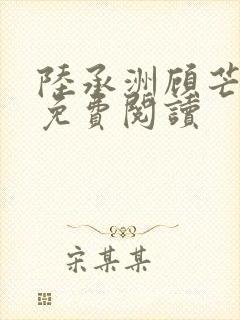 陸承洲顾芒
免費閱讀
宋某某